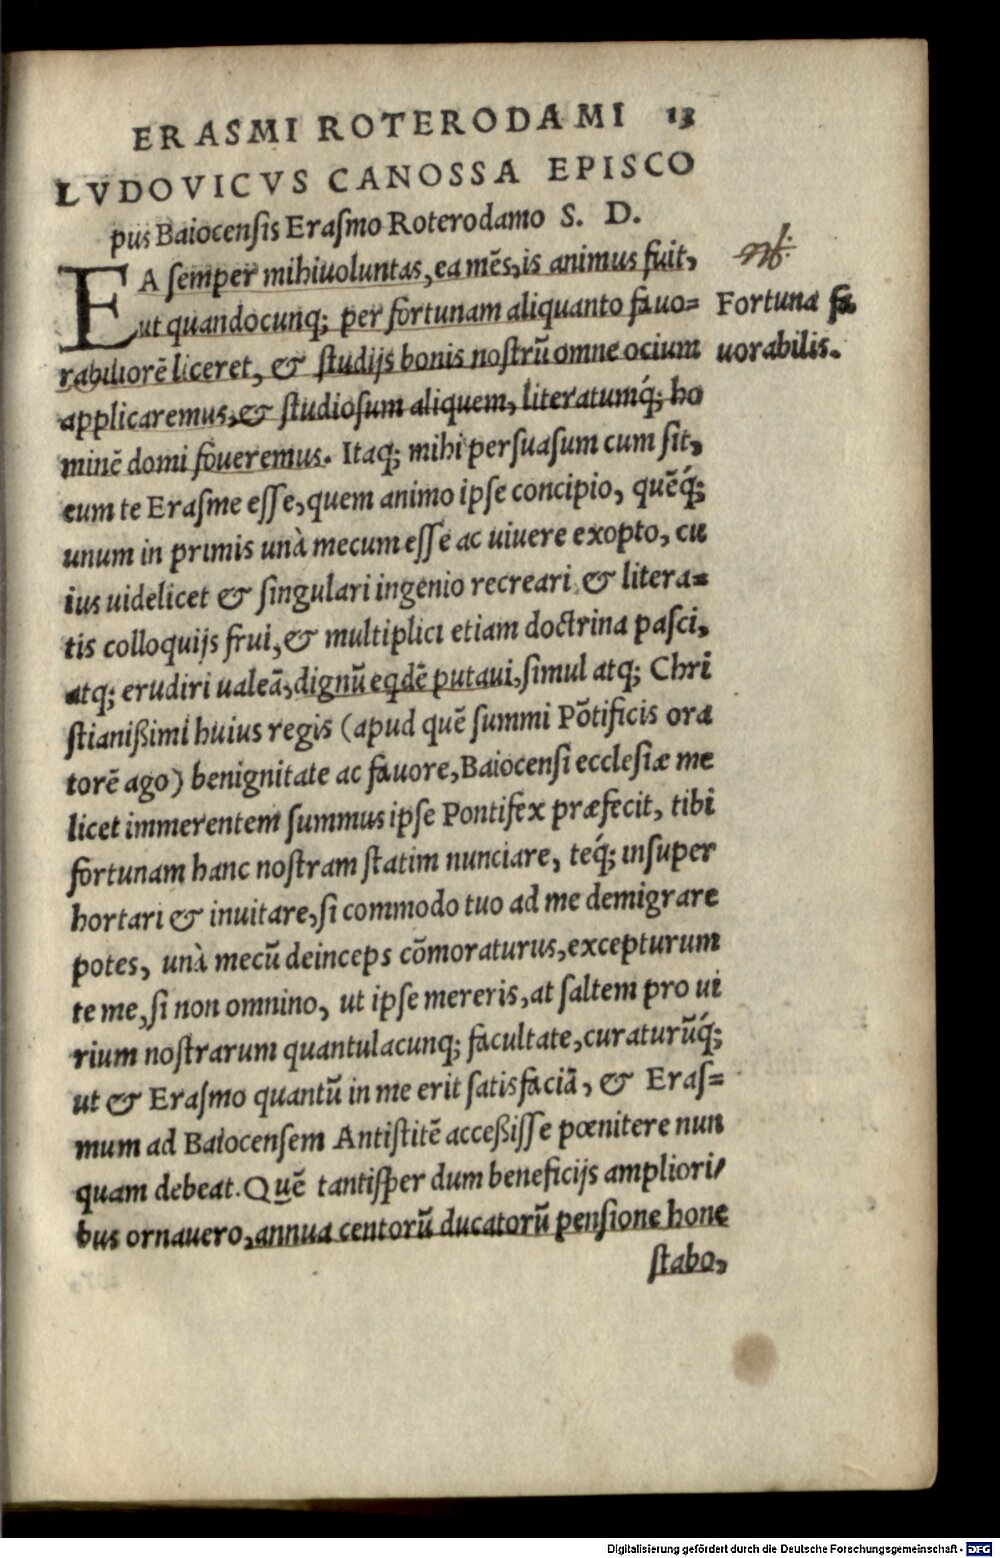 ERASMI ROTERODAMI 13
LVDOVICVS CANOSSA EPISCO
pus Baiocensis Erasmo Roterodamo S. D.
EA semper mihi uoluntas, ea mẽs, is animus fuit,
ut quandocunq; per fortunam aliquanto fauo=
rabiliorẽ liceret, & studijs bonis nostrũ omne ocium
applicaremus, & studiosum aliquem, literatumq́; ho
minẽ domi foueremus. Itaq; mihi persuasum cum sit,
eum te Erasme esse, quem animo ipse concipio, quẽq́;
unum in primis unà mecum esse ac uiuere exopto, cu
ius uidelicet & singulari ingenio recreari, & litera=
tis colloquijs frui, & multiplici etiam doctrina pasci,
atq; erudiri ualeã, dignũ eqdẽ putaui, simul atq; Chri
stianißimi huius regis (apud quẽ summi Põtificis ora
torẽ ago) benignitate ac fauore, Baiocensi ecclesiæ me
licet immerentem summus ipse Pontifex præfecit, tibi
fortunam hanc nostram statim nunciare, teq́; insuper
hortari & inuitare, si commodo tuo ad me demigrare
potes, unà mecũ deinceps cõmoraturus, excepturum
te me, si non omnino, ut ipse mereris, at saltem pro ui
rium nostrarum quantulacunq; facultate, curaturũq́;
ut & Erasmo quantũ in me erit satisfaciã, & Eras=
mum ad Baiocensem Antistitẽ acceßisse pœnitere nun
quam debeat. Quẽ tantisper dum beneficijs ampliori/
bus ornauero, annua centorũ ducatorũ pensione hone
stabo,
Fortuna fa
uorabilis.
Digitalisierung gefördert durch die Deutsche Forschungsgemeinschaft - DFG